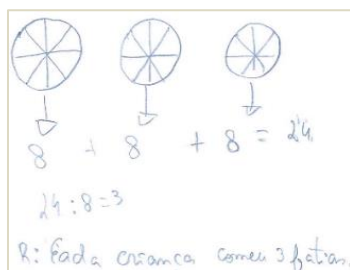 8 + 8 + 8 = 24
24 : 8 = 3
R: Cada criança comeu 3 fatias.